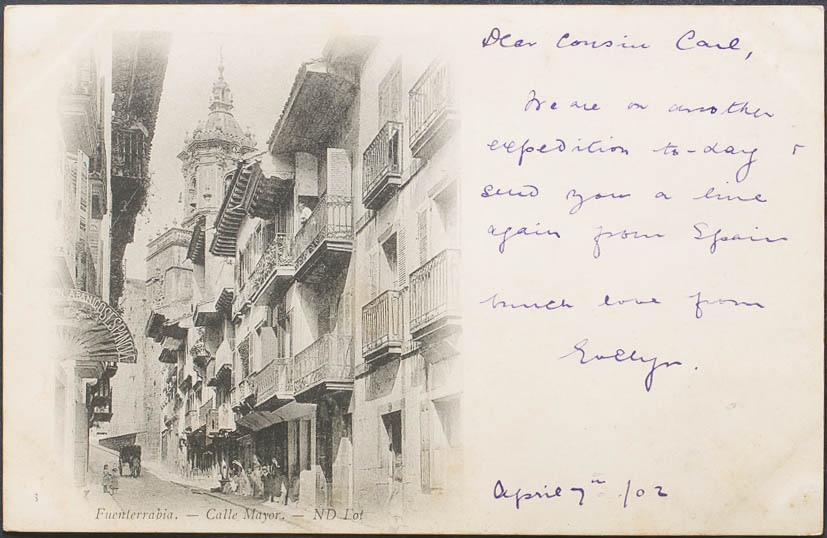 Dear Cousin Carl,
We are on another
expedition to-day &
send you a line
again from Spain
much love from
Evelyn.
April 7th /02
ABANICOS ESPAÑOL
3
Fuenterrabia. — Calle Mayor. — ND Fot